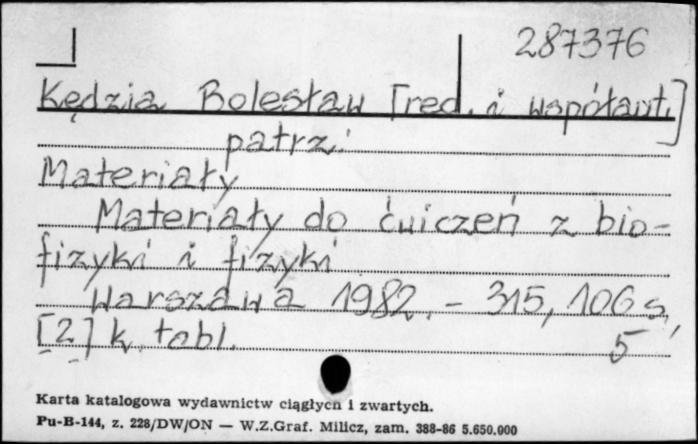 287376
Kędzia Bolesław [red. i współaut.]
patrz:
Materiały
Materiały do ćwiczeń z bio-
fizyki i fizyki
Warszawa 1982. - 315, 106 s,
[2] k. tabl.
5
Karta katalogowa wydawnictw ciągłych i zwartych.
Pu-B-144, z. 228/DW/ON — W.Z.Graf. Milicz, zam. 388-86 5.650.000